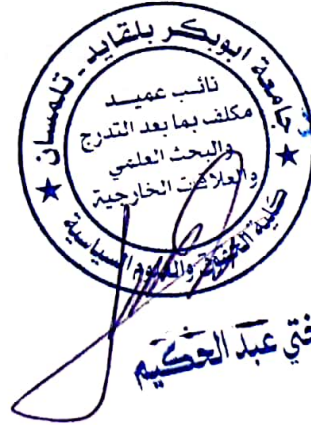 جامعة ابوبكر بلقايد - تلمسان
نائب عميد
مكلف بما بعد التدرج
والبحث العلمي
والعلاقات الخارجية
كلية الحقوق والعلوم السياسية
عبد الحكيم